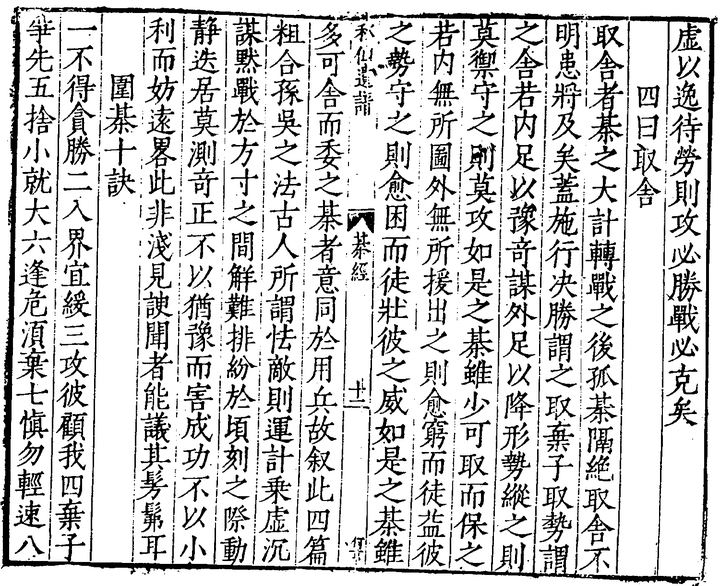 虛以逸待勞則攻必勝戰必克矣
四曰取舍
取舍者棊之大計轉戰之後孤棊隔絶取舍不
明患將及矣蓋施行决勝謂之取棄子取勢謂
之舍若内足以豫奇謀外足以降形勢縱之則
莫禦守之則莫攻如是之棊雖少可取而保之
若内無所圖外無所援出之則愈窮而徒益彼
之勢守之則愈困而徒壯彼之威如是之棊雖
仙遺譜
棊經
十二
多可舍而委之棊者意同於用兵故叙此四篇
粗合孫吳之法古人所謂怯敵則運計乗虛沉
謀默戰於方寸之間解難排紛於頃刻之際動
静迭居莫測奇正不以猶豫而害成功不以小
利而妨逺畧此非淺見諛聞者能議其髣髴耳
圍棊十訣
一不得貪勝二入界宜緩三攻彼顧我四棄子
爭先五捨小就大六逢危湏棄七慎勿輕速八